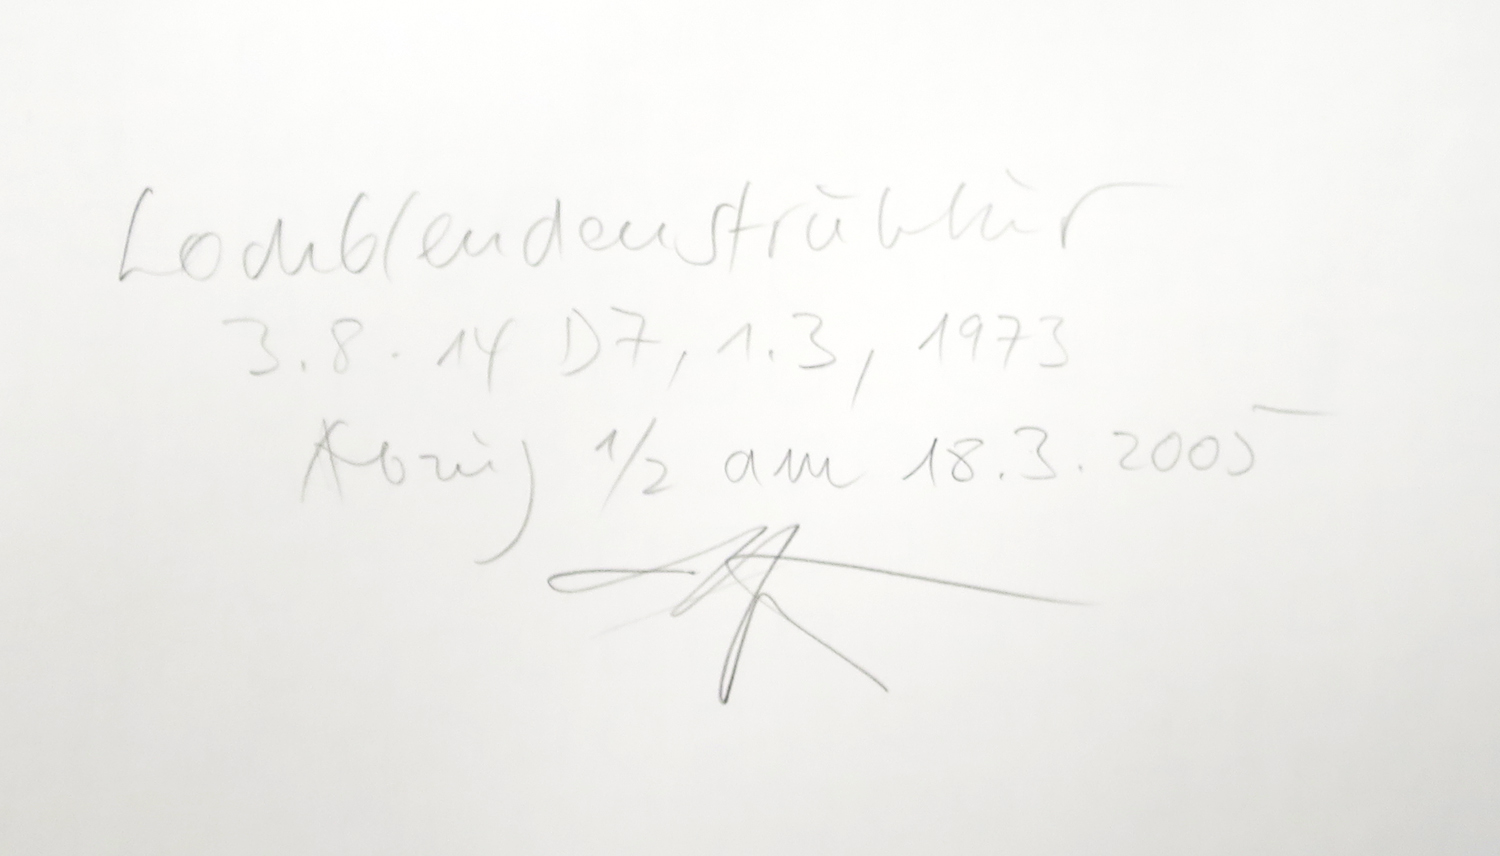 Lochblendenstruktur
3.8.14 D7, 1.3, 1973
Abzug 1/2 am 18.3.2005